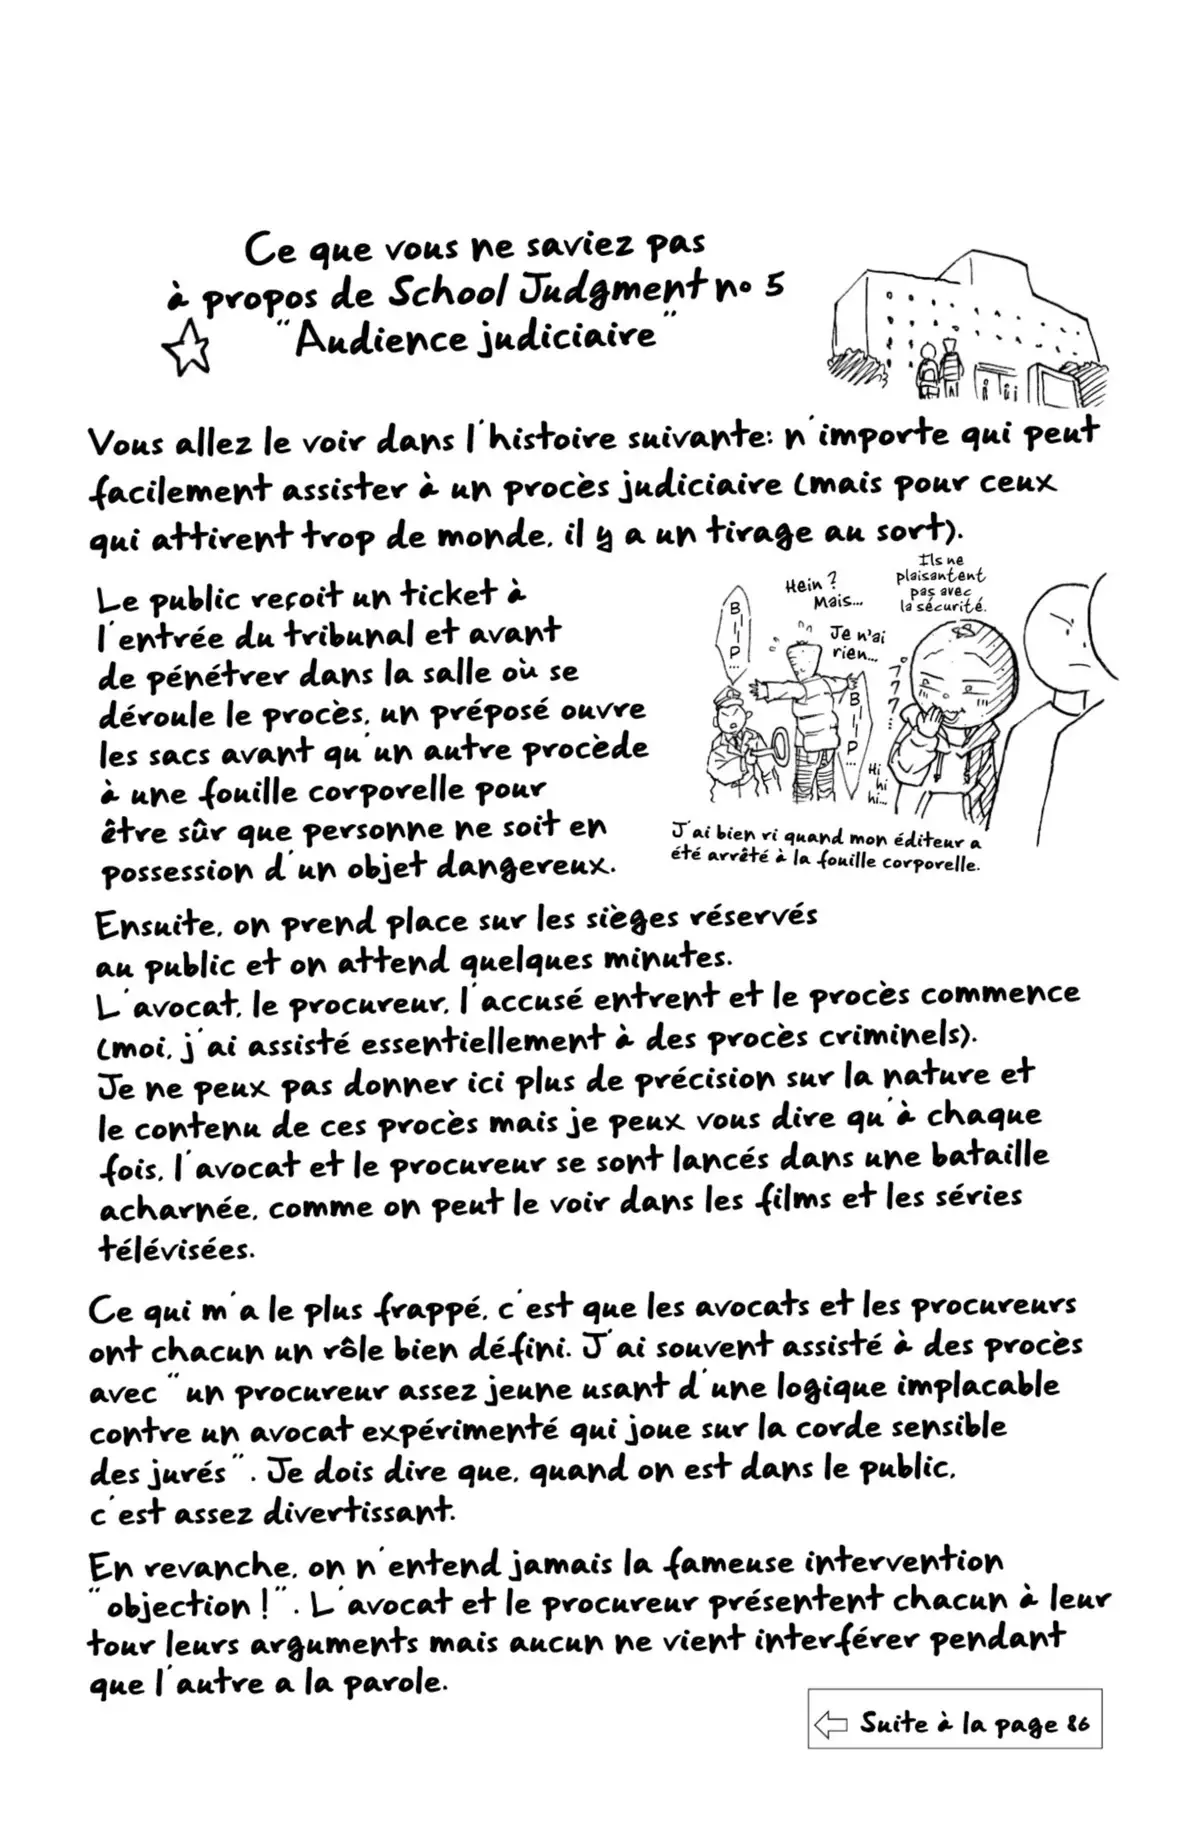 Ce que vous ne saviez pas
à propos de School Judgment n° 5
"Audience judiciaire"
Vous allez le voir dans l'histoire suivante: n'importe qui peut
facilement assister à un procès judiciaire (mais pour ceux
qui attirent trop de monde, il y a un tirage au sort).
Le public reçoit un ticket à
l'entrée du tribunal et avant
de pénétrer dans la salle où se
déroule le procès, un préposé ouvre
les sacs avant qu'un autre procède
à une fouille corporelle pour
être sûr que personne ne soit en
possession d'un objet dangereux.
BIIP...
Hein ?
Mais...
Je n'ai
rien...
BIIP...
Ils ne
plaisantent
pas avec
la sécurité.
Hi
hi
hi...
J'ai bien ri quand mon éditeur a
été arrêté à la fouille corporelle.
Ensuite, on prend place sur les sièges réservés
au public et on attend quelques minutes.
L'avocat, le procureur, l'accusé entrent et le procès commence
(moi, j'ai assisté essentiellement à des procès criminels).
Je ne peux pas donner ici plus de précision sur la nature et
le contenu de ces procès mais je peux vous dire qu'à chaque
fois, l'avocat et le procureur se sont lancés dans une bataille
acharnée, comme on peut le voir dans les films et les séries
télévisées.
Ce qui m'a le plus frappé, c'est que les avocats et les procureurs
ont chacun un rôle bien défini. J'ai souvent assisté à des procès
avec "un procureur assez jeune usant d'une logique implacable
contre un avocat expérimenté qui joue sur la corde sensible
des jurés". Je dois dire que, quand on est dans le public,
c'est assez divertissant.
En revanche, on n'entend jamais la fameuse intervention
"objection !". L'avocat et le procureur présentent chacun à leur
tour leurs arguments mais aucun ne vient interférer pendant
que l'autre a la parole.
Suite à la page 86